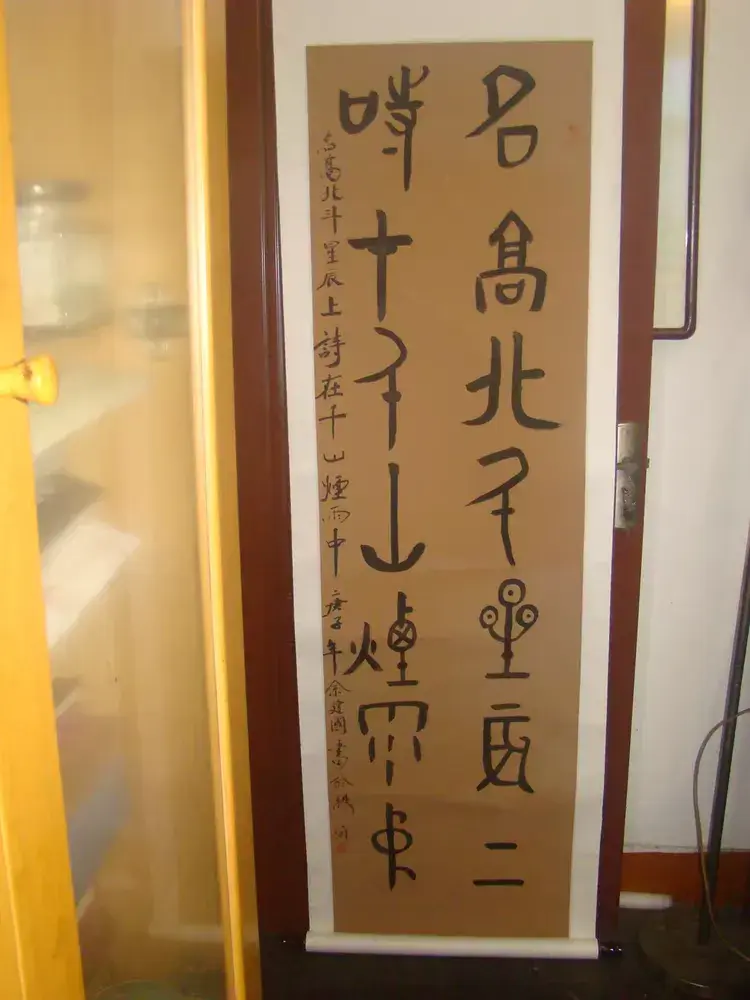 名高北斗星辰上
詩在千山煙雨中
名高北斗星辰上詩在千山煙雨中庚子年余建國書於